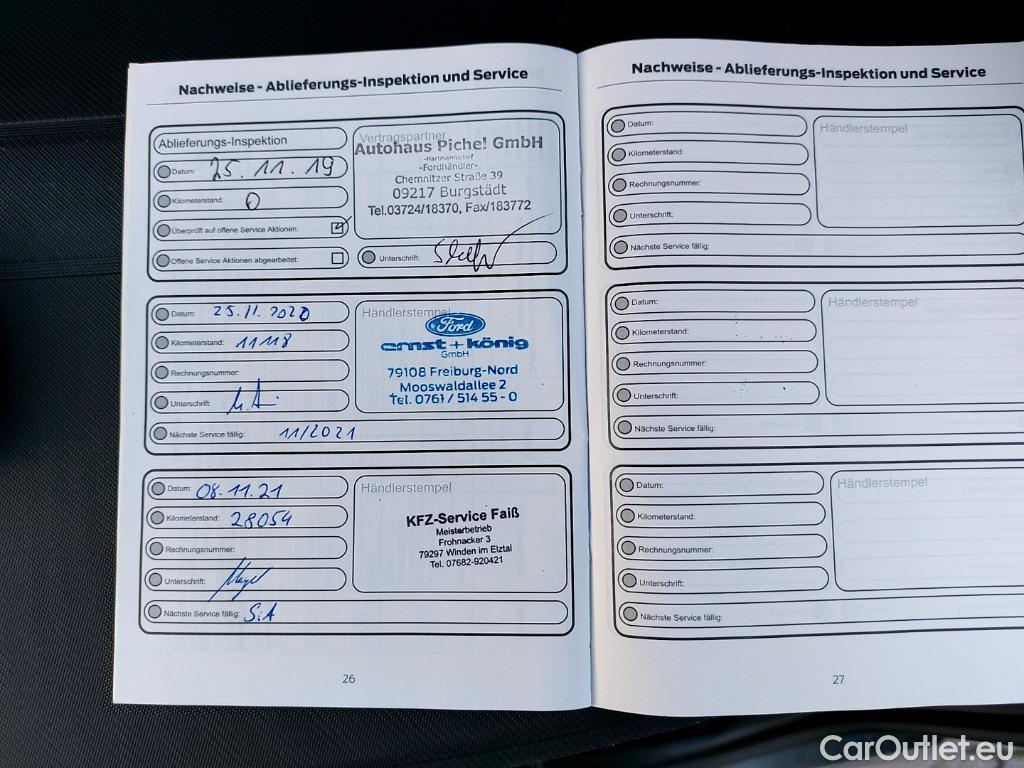 Nachweise - Ablieferungs-Inspektion und Service
Ablieferungs-Inspektion
Datum: 25.11.19
Kilometerstand: 0
Überprüft auf offene Service Aktionen:
Offene Service Aktionen abgearbeitet:
Vertragspartner
Autohaus Pichel GmbH
-Hartmannsdorf
-Fordhändler-
Chemnitzer Straße 39
09217 Burgstädt
Tel.03724/18370, Fax/183772
Unterschrift:
Datum: 25.11.2020
Kilometerstand: 11118
Rechnungsnummer:
Unterschrift:
Nächste Service fällig: 11/2021
Händlerstempel
Ford
ernst + könig
GmbH
79108 Freiburg-Nord
Mooswaldallee 2
Tel. 0761 / 514 55 - 0
Datum: 08.11.21
Kilometerstand: 28054
Rechnungsnummer:
Unterschrift:
Nächste Service fällig: S.A
Händlerstempel
KFZ-Service Faiß
Meisterbetrieb
Frohnacker 3
79297 Winden im Elztal
Tel. 07682-920421
26
Nachweise - Ablieferungs-Inspektion und Service
Datum:
Kilometerstand:
Rechnungsnummer:
Unterschrift:
Nächste Service fällig:
Händlerstempel
Datum:
Kilometerstand:
Rechnungsnummer:
Unterschrift:
Nächste Service fällig:
Händlerstempel
Datum:
Kilometerstand:
Rechnungsnummer:
Unterschrift:
Nächste Service fällig:
Händlerstempel
27
CarOutlet.eu